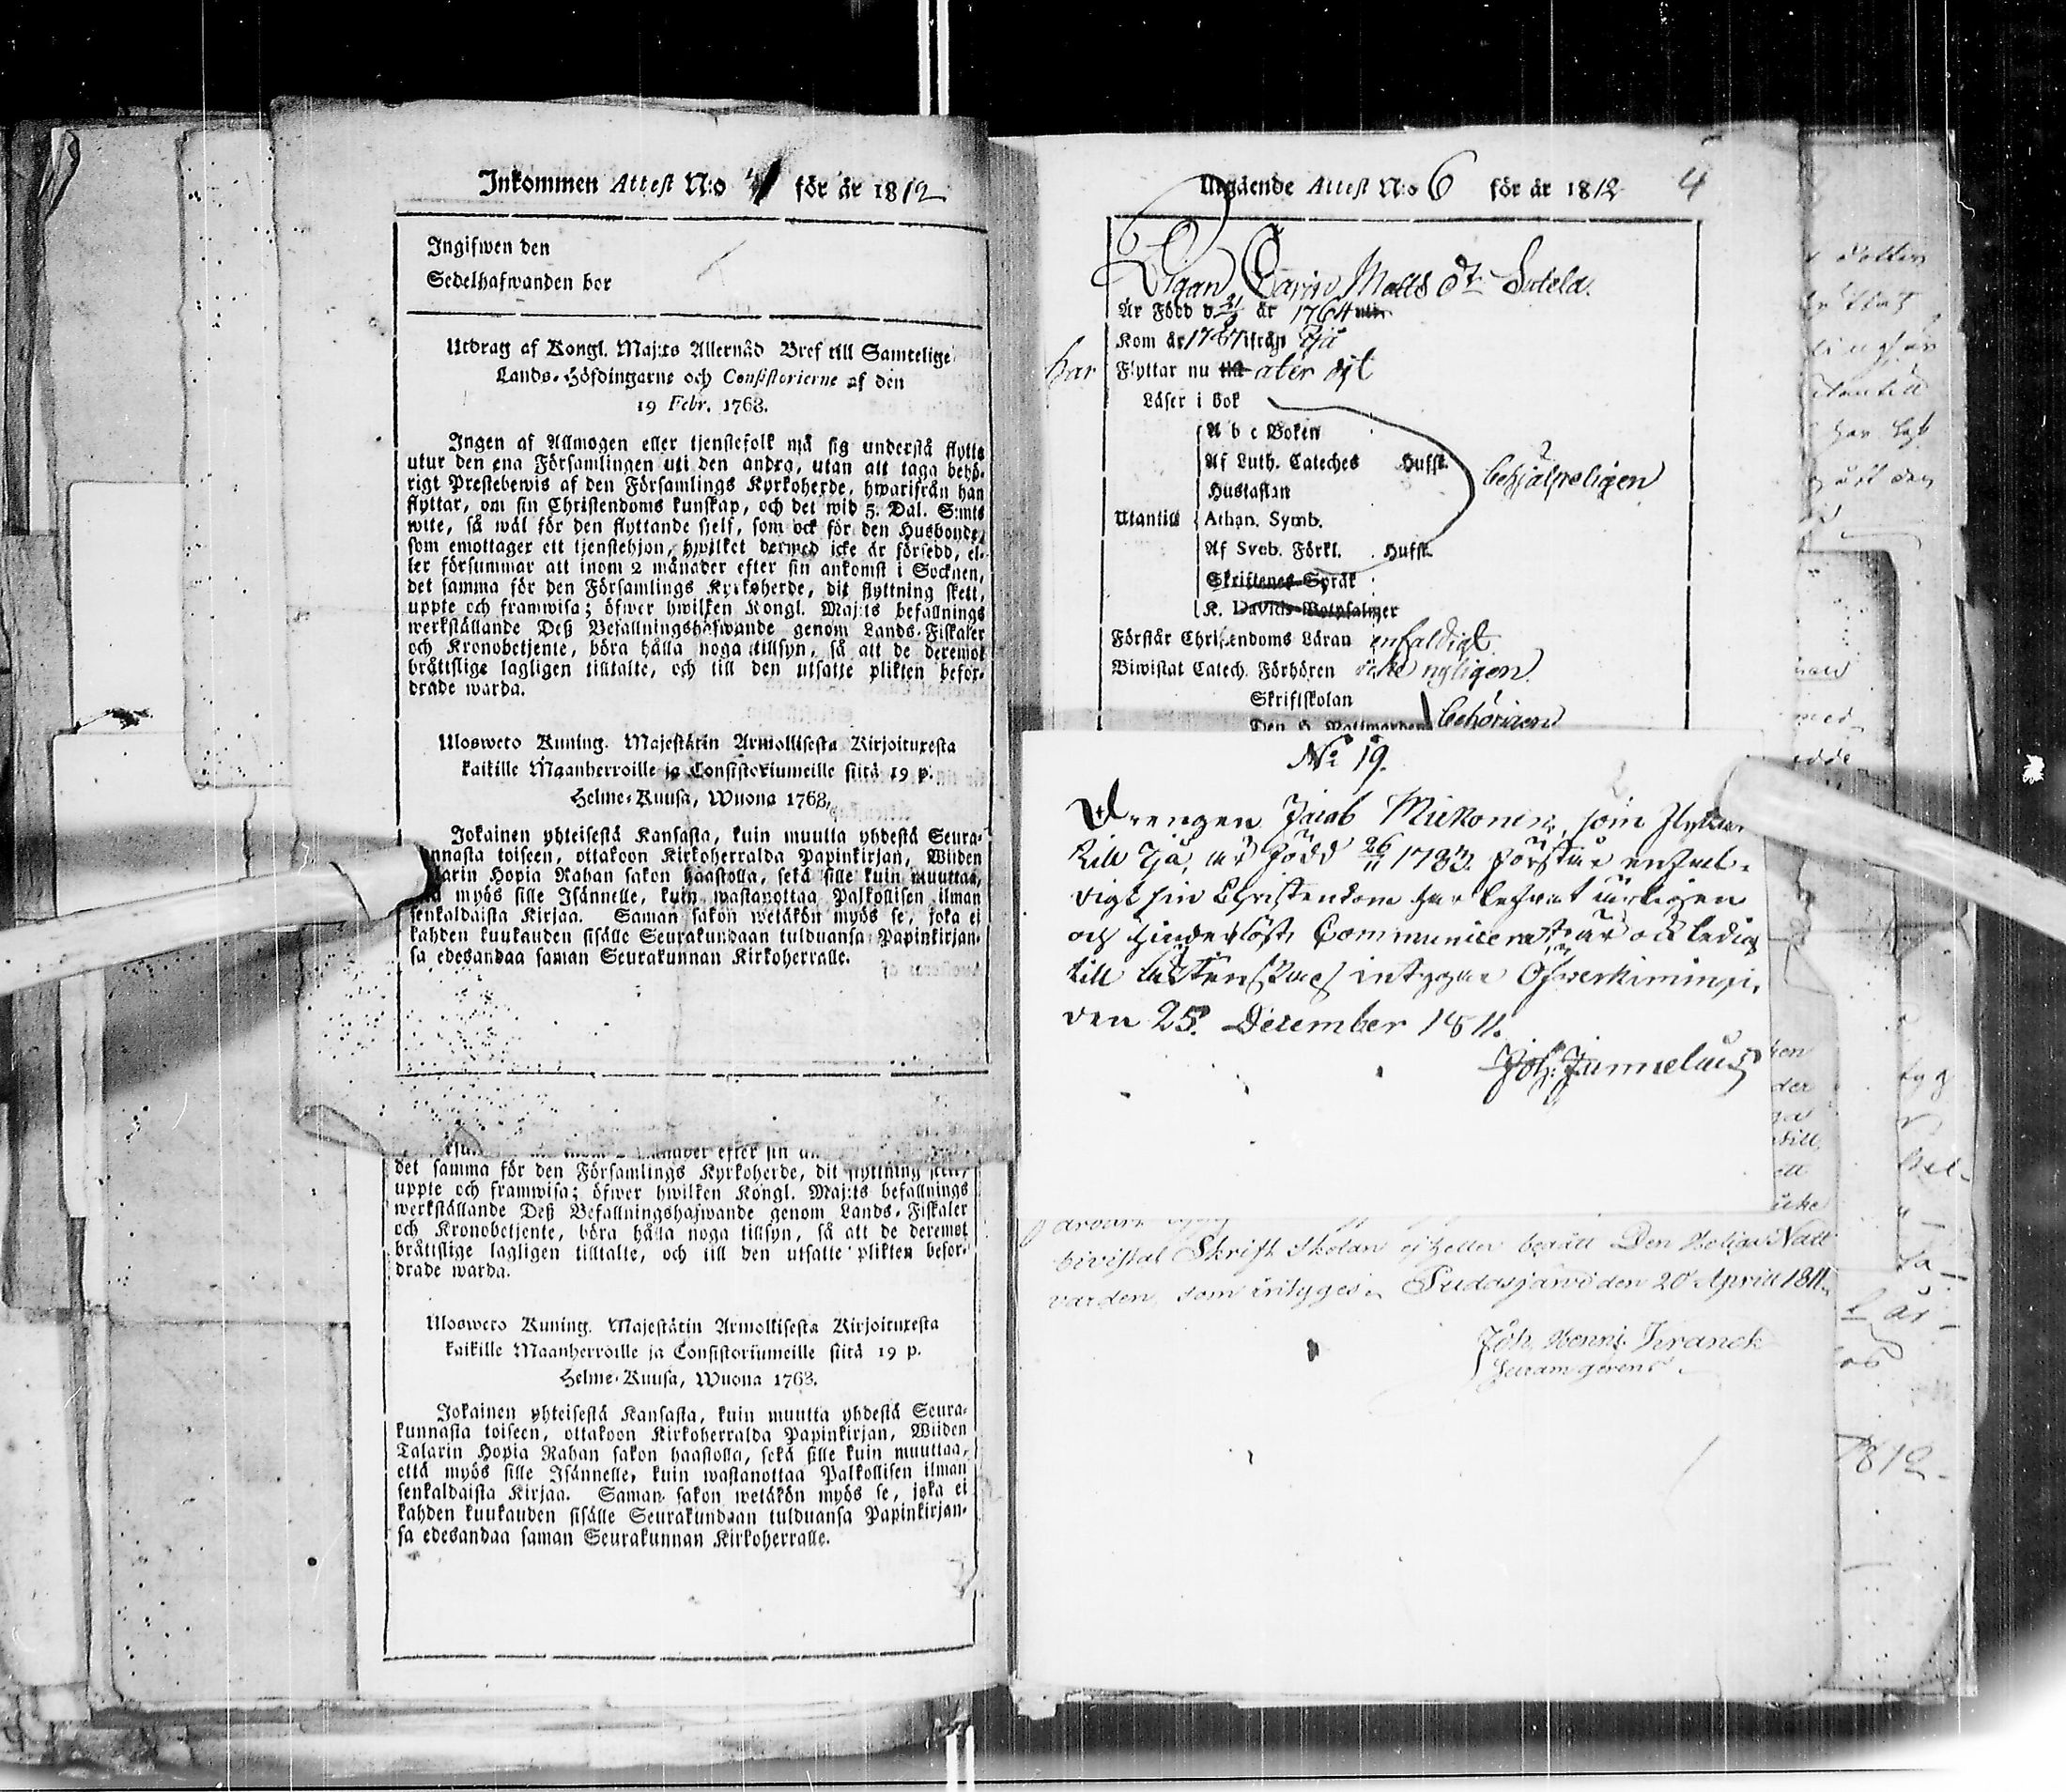 Inkommen Attest N:o 4 för år 1812
Ingifwen den
Sedelhafwanden bor
Utdrag af Kongl. Maj:ts Allernåd Bref till Samtelige
Lands-Höfdingarne och Consistorierne af den
19 Febr. 1763.
Ingen af Allmogen eller tjenstefolk må sig understå flytta
utur den ena Församlingen uti den andra, utan att taga behö-
rigt Prestebewis af den Församlings Kyrkoherde, hwarifrån han
flyttar, om sin Christendoms kunskap, och det wid 5. Dal. S:mts
wite, så wäl för den flyttande sjelf, som ock för den Husbonde,
som emottager ett tjenstehjon, hwilket dermed icke är försedd, el-
ler försummar att inom 2 månader efter sin ankomst i Socknen,
det samma för den Församlings Kyrkoherde, dit flyttning skett,
uppte och framwisa; öfwer hwilken Kongl. Maj:ts befallnings
werkställande Deß Befallningshafwande genom Lands-Fiskaler
och Kronobetjente, böra hålla noga tillsyn, så att de deremot
bråttslige lagligen tilltalte, och till den utsatte plikten befor-
drade warda.
Ulosweto Kuning. Majestätin Armollisesta Kirjoituxesta
kaikille Maanherroille ja Consistoriumeille siitä 19 p.
Helme-Kuusa, Wuona 1763.
Jokainen yhteisestä Kansasta, kuin muutta yhdestä Seura-
nnasta toiseen, ottakoon Kirkoherralda Papinkirjan, Wiiden
larin Hopia Rahan sakon haastolla, sekä sille kuin muuttaa,
myös sille Isännelle, kuin wastanottaa Palkollisen ilman
senkaldaista Kirjaa. Saman sakon wetäkön myös se, joka ei
kahden kuukauden sisälle Seurakundaan tulduansa Papinkirjan-
sa edesandaa saman Seurakunnan Kirkoherralle.
efter sin
det samma för den Församlings Kyrkoherde, dit flyttning skett,
uppte och framwisa; öfwer hwilken Kongl. Maj:ts befallnings
werkställande Deß Befallningshafwande genom Lands-Fiskaler
och Kronobetjente, böra hålla noga tillsyn, så att de deremot
bråttslige lagligen tilltalte, och till den utsatte plikten befor-
drade warda.
Ulosweto Kuning. Majestätin Armollisesta Kirjoituxesta
kaikille Maanherroille ja Consistoriumeille siitä 19 p.
Helme-Kuusa, Wuona 1763.
Jokainen yhteisestä Kansasta, kuin muutta yhdestä Seura-
kunnasta toiseen, ottakoon Kirkoherralda Papinkirjan, Wiiden
Talarin Hopia Rahan sakon haastolla, sekä sille kuin muuttaa,
että myös sille Isännelle, kuin wastanottaa Palkollisen ilman
senkaldaista Kirjaa. Saman sakon wetäkön myös se, joka ei
kahden kuukauden sisälle Seurakundaan tulduansa Papinkirjan-
sa edesandaa saman Seurakunnan Kirkoherralle.
Utgående Attest N:o 6 för år 1812 4
Pigan Carin Matts dr Sutela.
Är Född d 21/9 år 1764
Kom år 1787 ifrån Ijå
har Flyttar nu till åter dit
Läser i bok
A b c Boken
Af Luth. Cateches Hufst.
behjälpeligen
Hustaflan
Utantill Athan. Symb.
Af Sveb. Förkl. Hufst.
Skriftenes Språk
K. Davids Botpsalmer
Förstår Christendoms Läran enfaldigt
Biwistat Catech. Förhören icke nyligen
Skriftskolan
Den H. Nattwarden behörigen
No 19.
Drengen Jacob Mickonen, som flyttar
till Ijå, är född 26/11 1783. förstår enfal-
digt sin Christendom har lefvat ärligen
och hinderlöst Communicerat, är ock ledig
till äktenskap intygar Öfwerkiminki,
den 25. December 1811.
Joh: Jammelaus
bivistat Skrift Skolan ej heller begått Den Helga Natt
varden, som intyges, Pudasjärvi den 20 Aprill 1811.
Joh. Henr. Franck
1812.